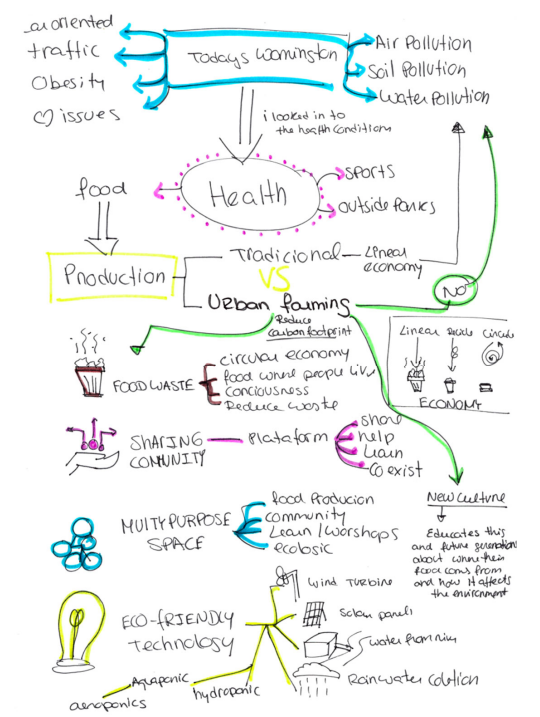 oriented
traffic
Obesity
issues
Todays Wilmington
Air Pollution
Soil Pollution
Water Pollution
i looked in to
the health conditions
food
Health
sports
outside
Production
Tradicional
Linear
economy
VS
Urban farming
NO
Reduce
carbon footprint
Linear
Circular
ECONOMY
FOOD WASTE
circular economy
food where people live
conciousness
Reduce waste
SHARING
COMUNITY
Plataform
show
help
Learn
Coexist
New Culture
Educates this
and future generations
about where their
food coms from
and how it affects
the environment
MULTYPURPOSE
SPACE
food Producion
community
Learn / Worshops
ECO-FRIENDLY
Technology
Wind Turbine
Solar panels
water from
Rainwater
Aquaponic
hydroponic
aeroponics